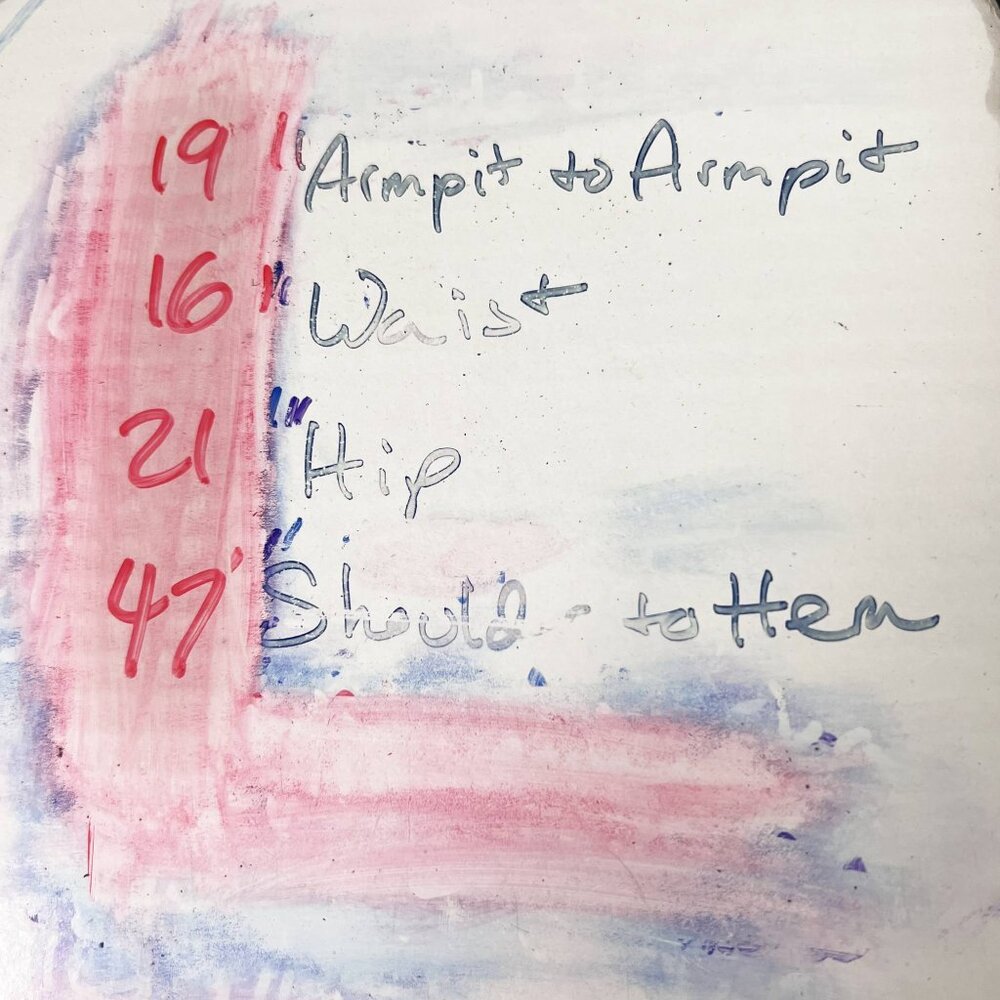 19" Armpit to Armpit
16" Waist
21" Hip
47" Should - to Hem